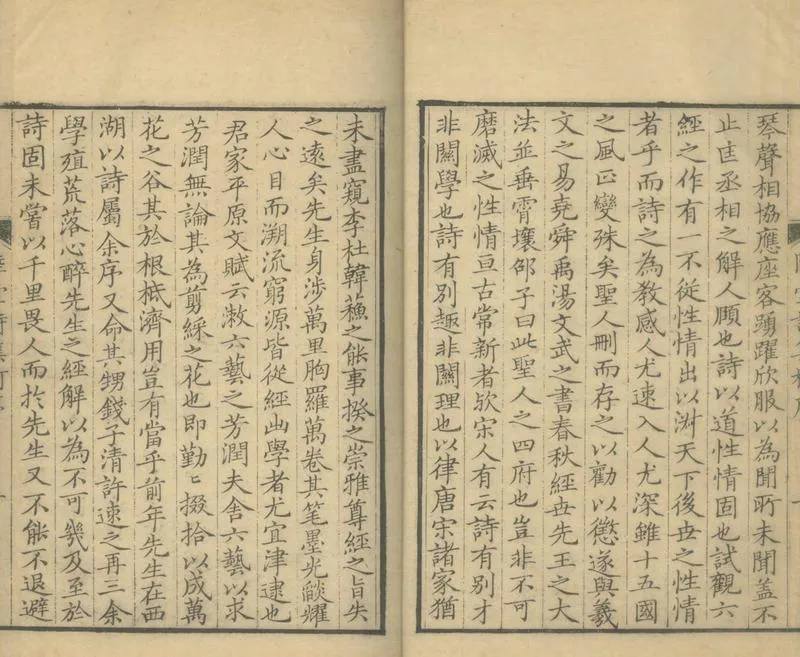 琴聲相協應座客踴躍欣服以為聞所未聞蓋不
止匡丞相之解人頤也詩以道性情固也試觀六
經之作有一不從性情出以淑天下後世之性情
者乎而詩之為教感人尤速入人尤深雖十五國
之風正變殊矣聖人刪而存之以勸以懲遂與羲
文之易堯舜禹湯文武之書春秋經世先王之大
法並垂霄壤邵子曰此聖人之四府也豈非不可
磨滅之性情亘古常新者歟宋人有云詩有別才
非關學也詩有別趣非關理也以律唐宋諸家猶
未盡窺李杜韓蘓之能事揆之崇雅尊經之旨失
之遠矣先生身涉萬里胸羅萬卷其笔墨光燄耀
人心目而溯流窮源皆從經出學者尤宜津逮也
君家平原文賦云潄六藝之芳潤夫舍六藝以求
芳潤無論其為剪綵之花也即勤〻掇拾以成萬
花之谷其於根柢濟用豈有當乎前年先生在西
湖以詩屬余序又命其甥錢子清許速之再三余
學殖荒落心醉先生之經解以為不可幾及至於
詩固未嘗以千里畏人而於先生又不能不退避